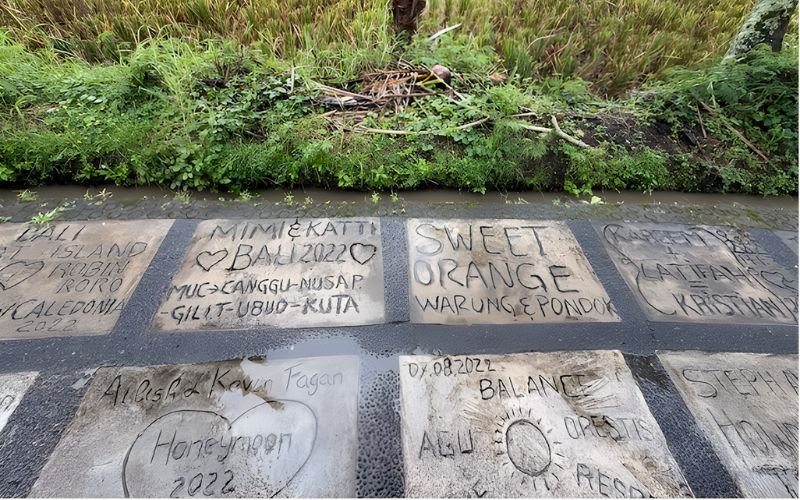 BALI
ISLAND
ROBIN
RORO
CALEDONIA
2022
MIMI & KATTI
BALI 2022
MUC→CANGGU-NUSAP.
-GILI T-UBUD-KUTA
SWEET
ORANGE
WARUNG & PONDOK
+
LATIFAH
=
KRISTIANY
& Kevin Fagan
Honeymoon
2022
07.08.2022
BALANCE
AGU
ORESTIS
RESP
STEPHA